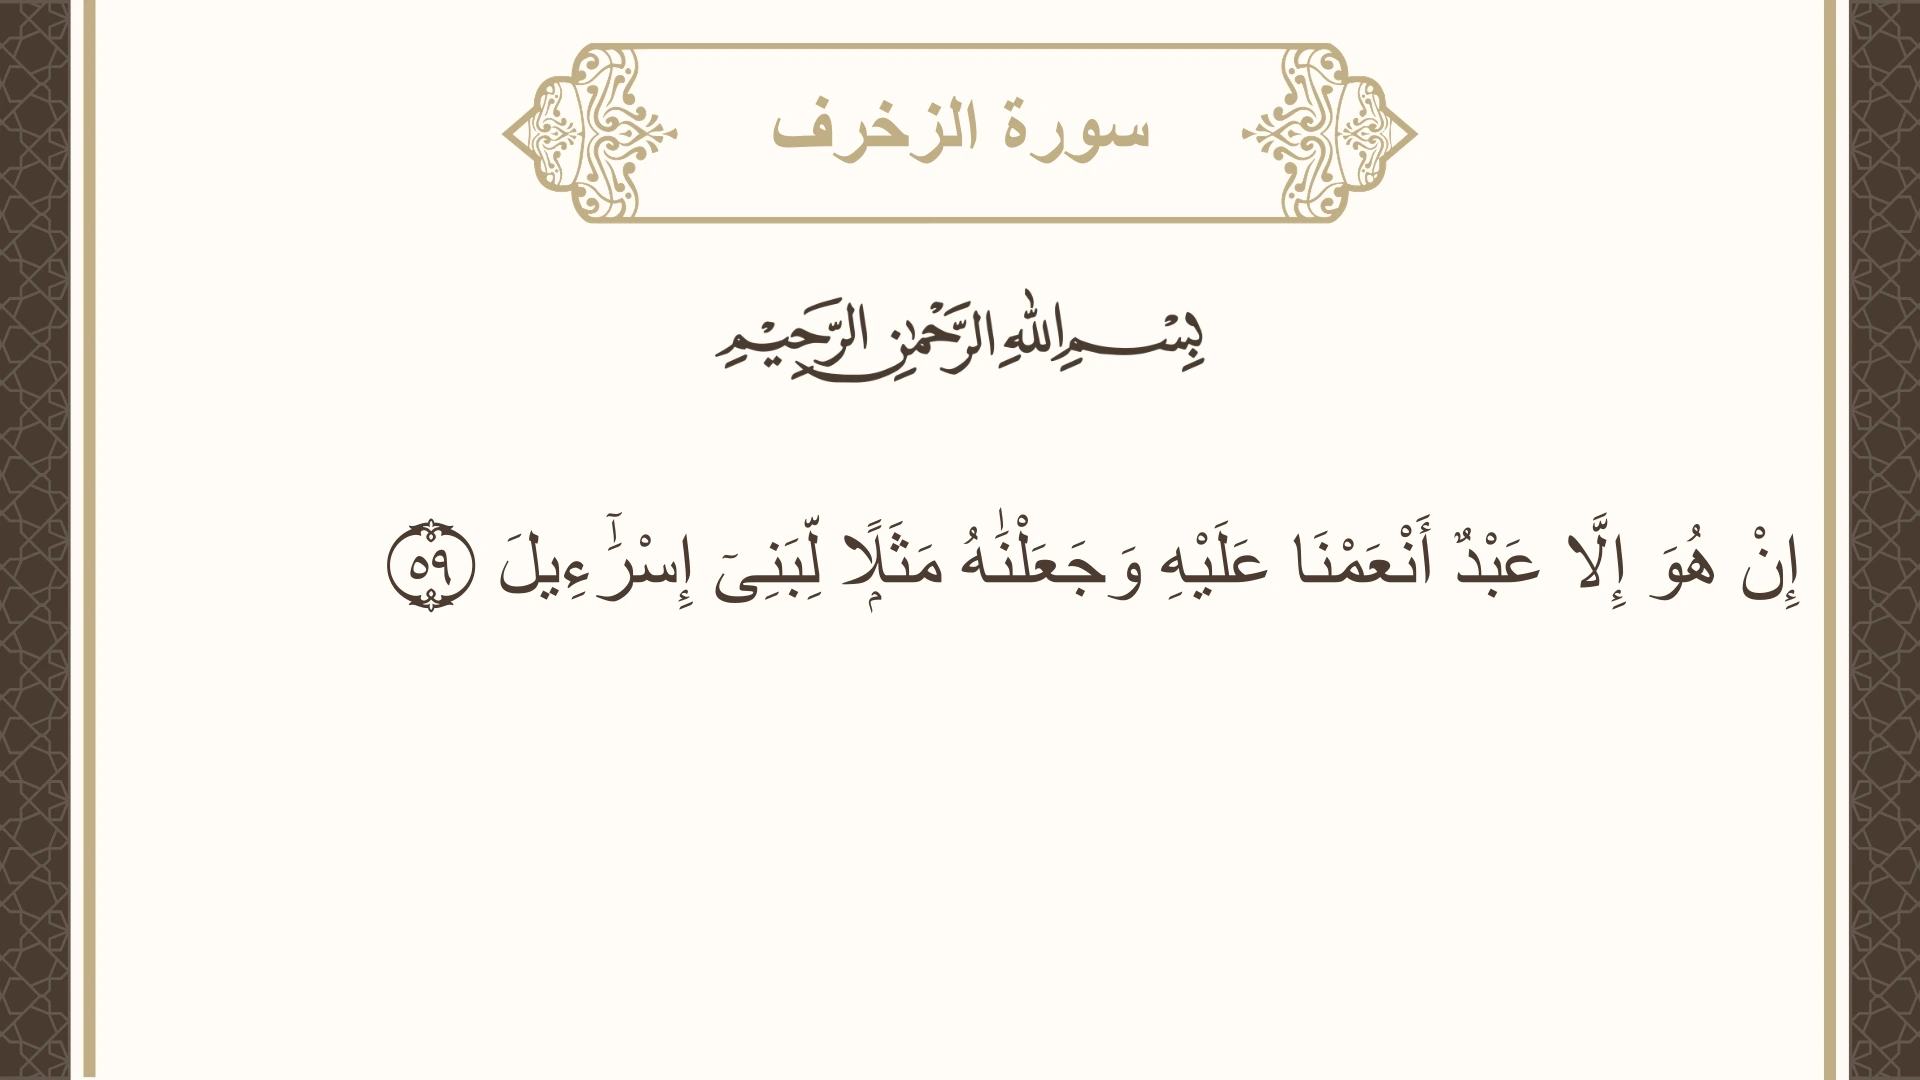 سورة الزخرف
بِسْمِ اللهِ الرَّحْمٰنِ الرَّحِيْمِ
إِنْ هُوَ إِلَّا عَبْدٌ أَنْعَمْنَا عَلَيْهِ وَجَعَلْنَٰهُ مَثَلًۭا لِّبَنِىٓ إِسْرَٰٓءِيلَ ٥٩